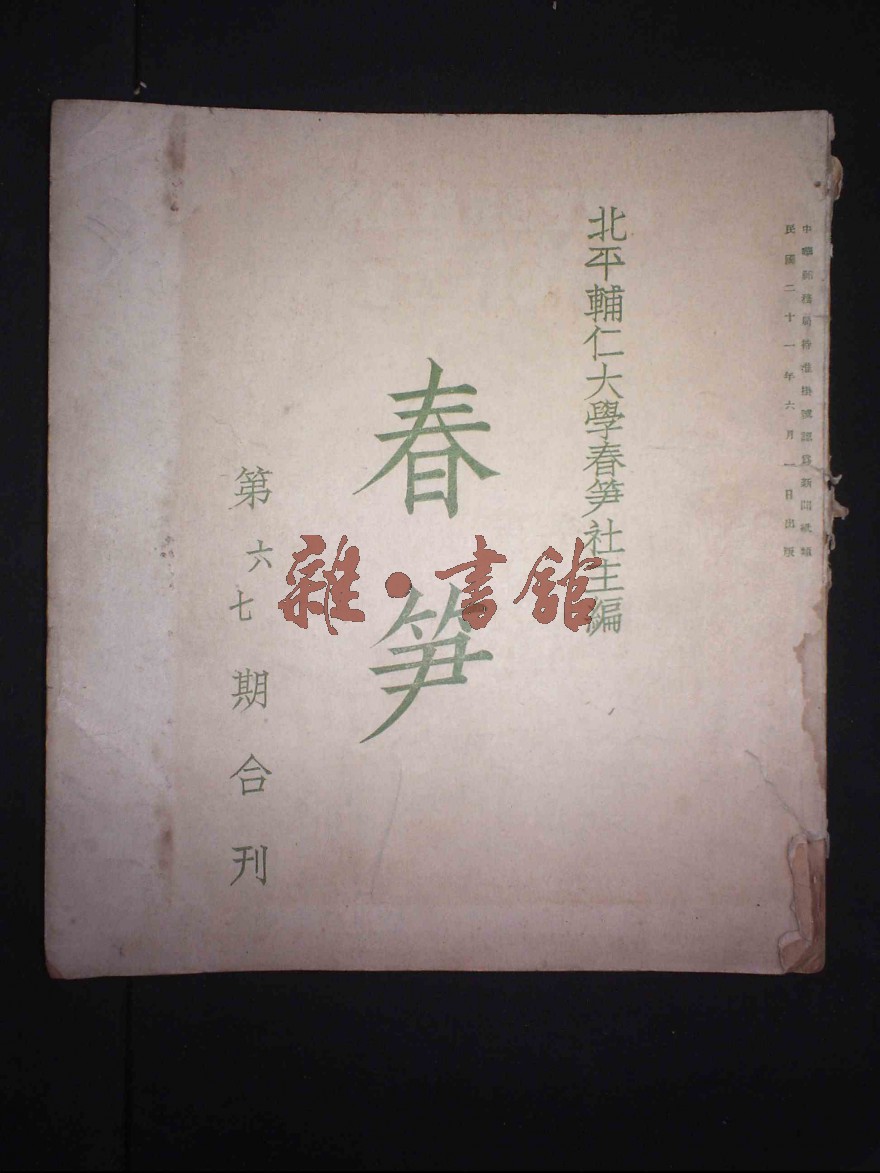 中華郵務局特准掛號認爲新聞紙類
民國二十一年六月一日出版
北平輔仁大學春笋社主編
春笋
第六七期合刊
雜·書館